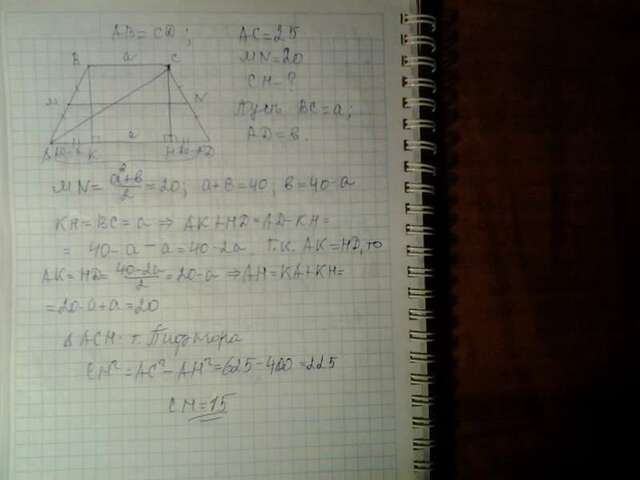 AB = CD ; AC = 25
MN = 20
CH - ?
Пусть BC = a ;
AD = b .
B a C
M N
A 20-a K a H 20-a D
MN = (a+b)/2 = 20 ; a+b = 40 ; b = 40-a
KH = BC = a ⇒ AK+HD = AD-KH =
= 40-a-a = 40-2a. Т.К. AK = HD, то
AK = HD = (40-2a)/2 = 20-a ⇒ AH = KA+KH =
= 20-a+a = 20
Δ ACH: т. Пифагора
CH² = AC² - AH² = 625 - 400 = 225
CH = 15